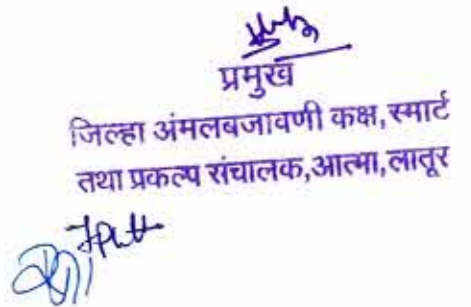 प्रमुख
जिल्हा अंमलबजावणी कक्ष,स्मार्ट
तथा प्रकल्प संचालक,आत्मा,लातूर